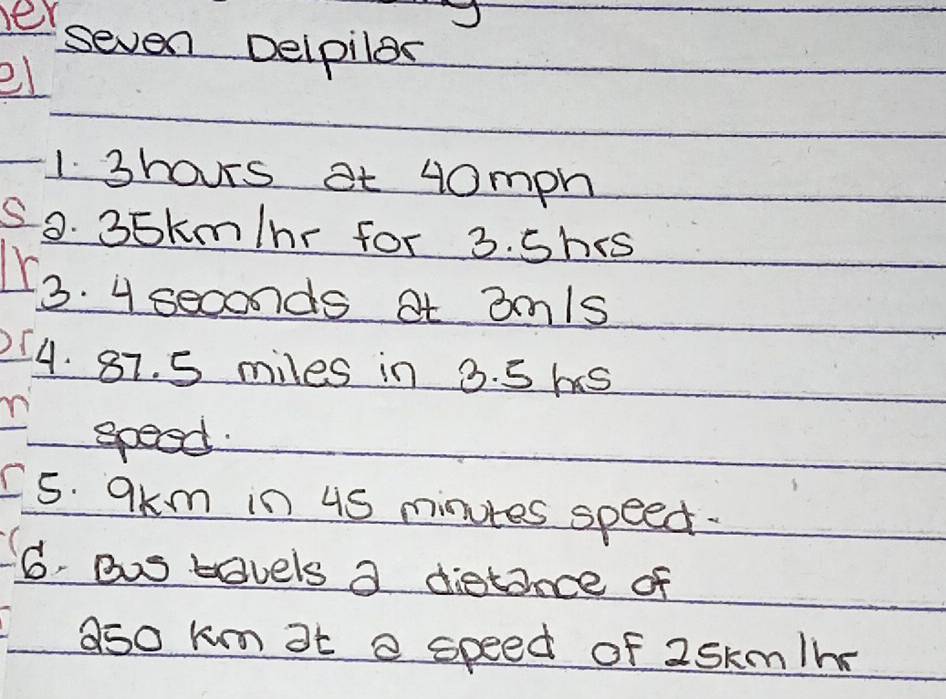 Seven Delpilar
1. 3 hours at 40mph
2. 35km/hr for 3.5hrs
3. 4 seconds at 3m/s
4. 87.5 miles in 3.5 hrs
speed.
5. 9km in 45 minutes speed.
6. Bus travels a distance of
250 km at a speed of 25km/hr